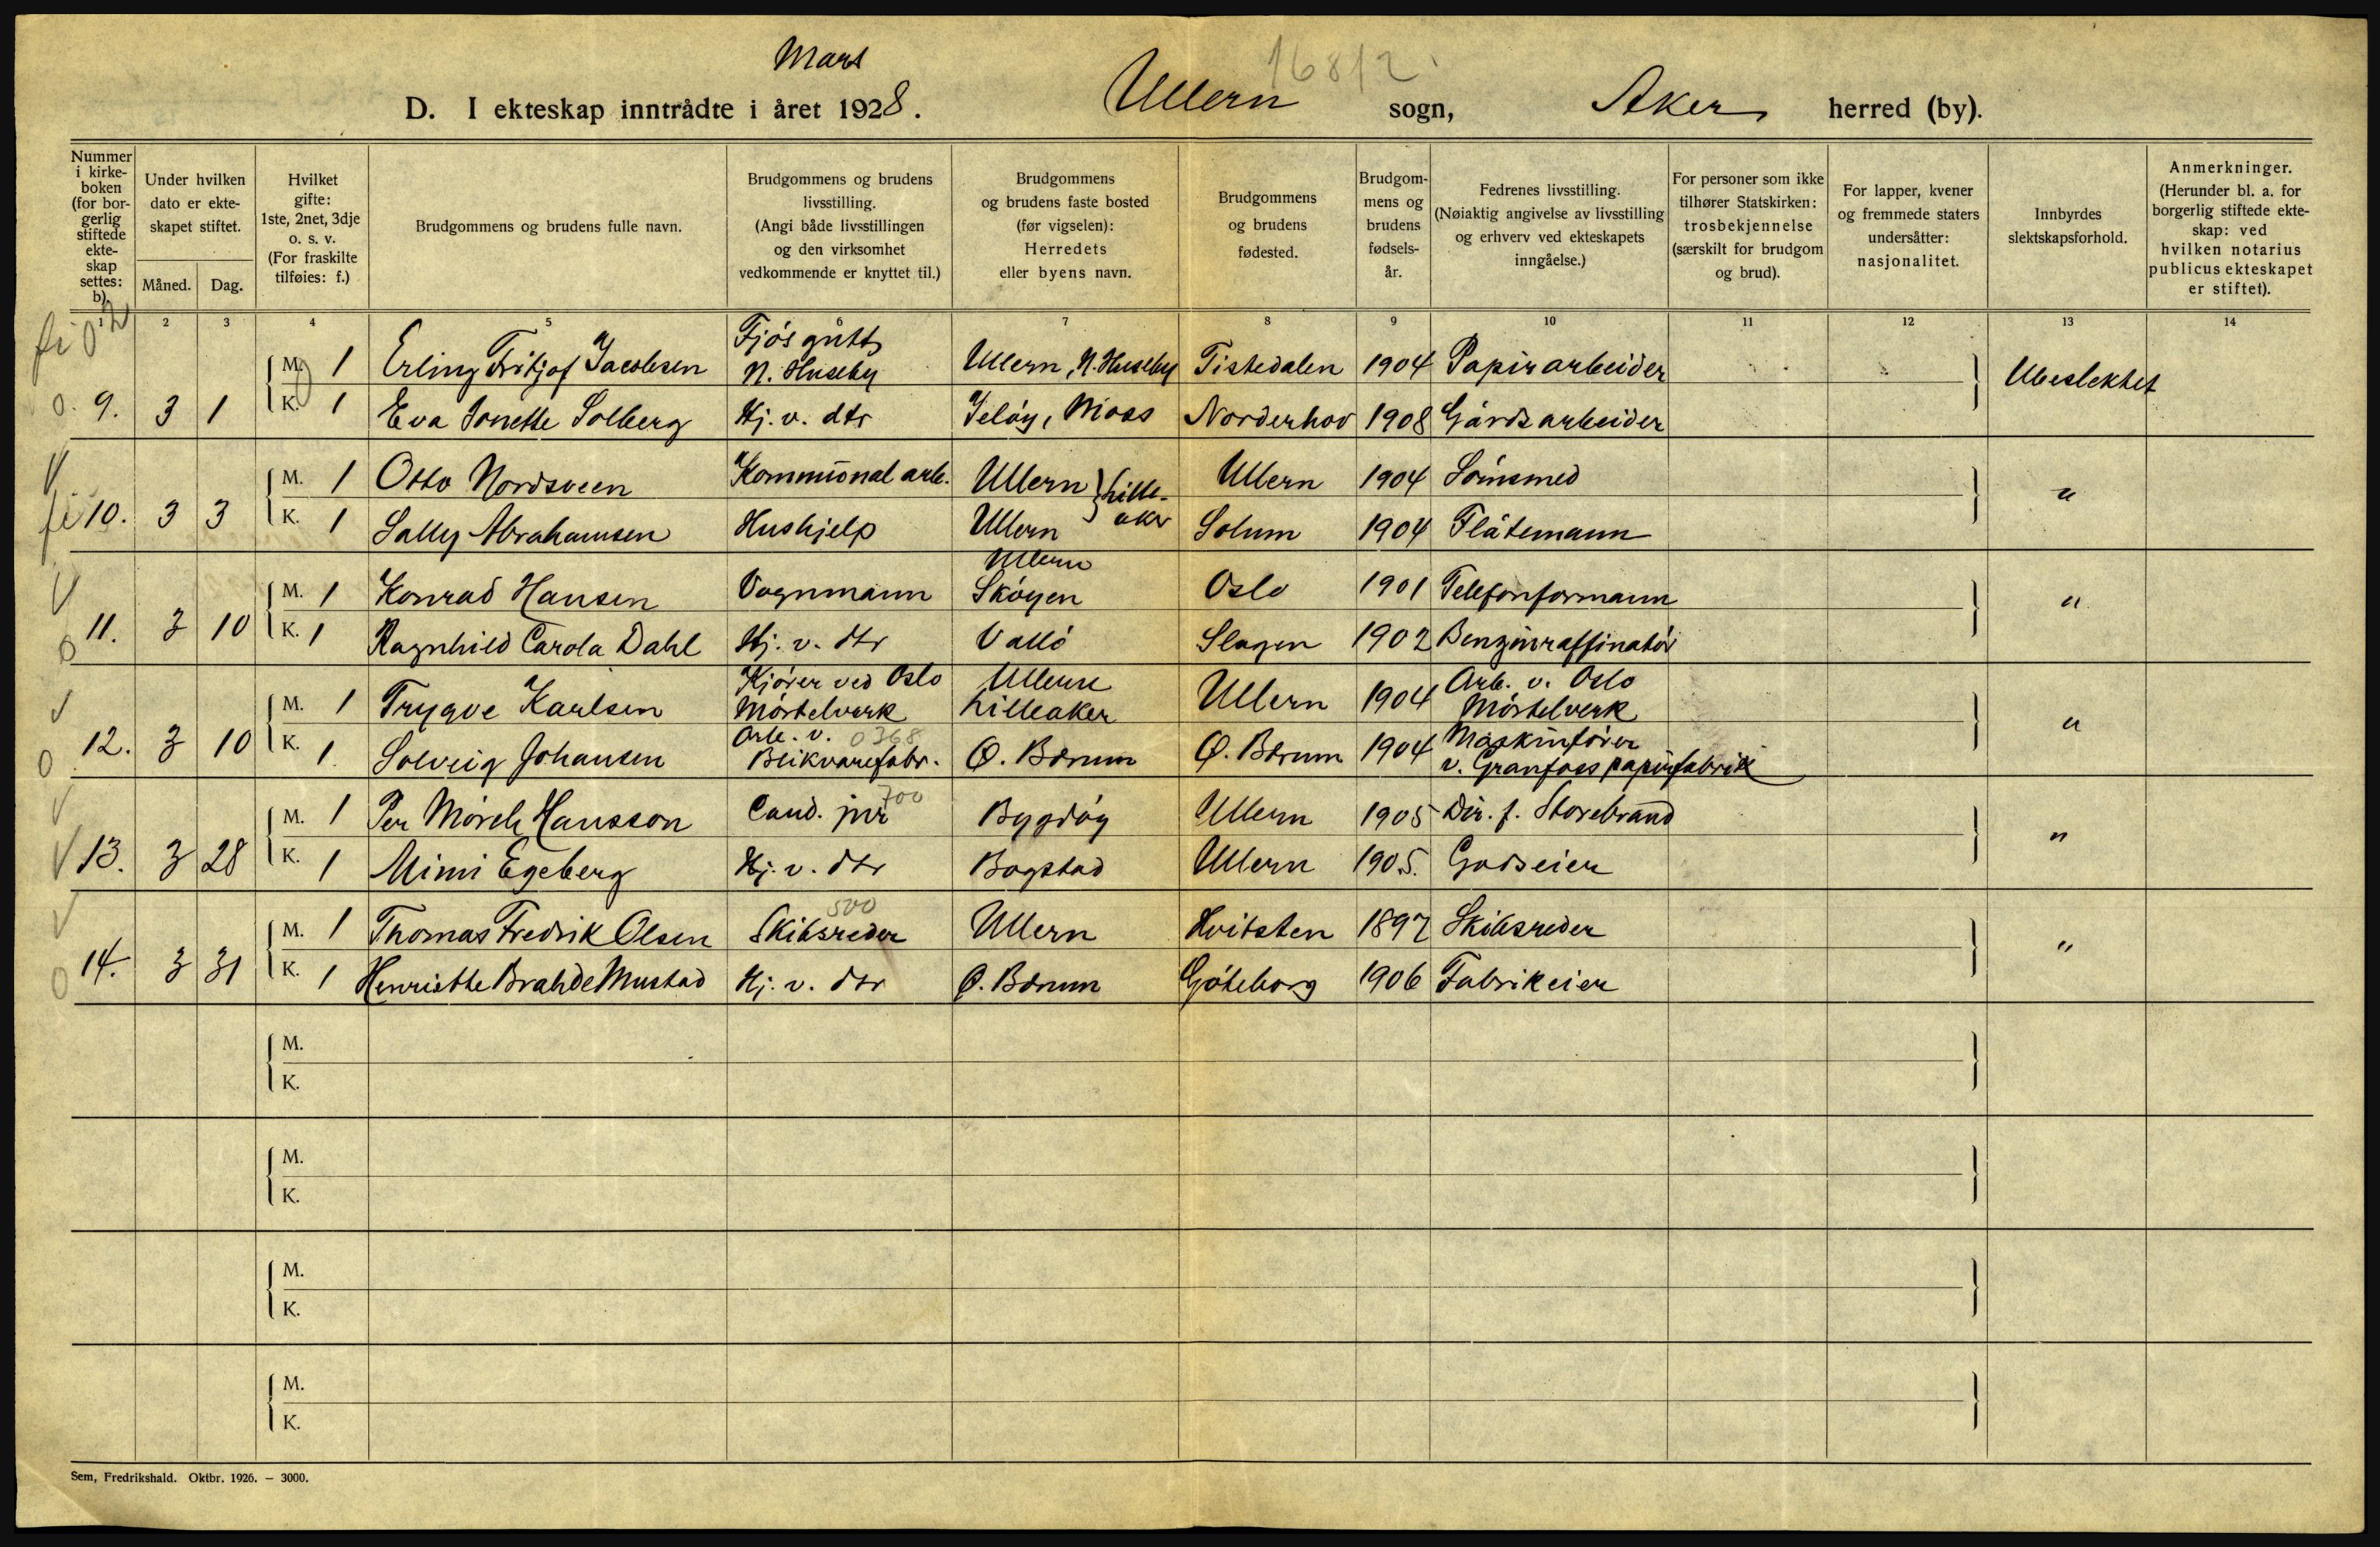 Mars
16812.
D. I ekteskap inntrådte i året 1928. Ullern sogn, Aker herred (by).
Nummer i kirke- boken (for bor- gerlig stiftede ekte- skap settes: b).
Under hvilken dato er ekte- skapet stiftet.
Måned. Dag.
Hvilket gifte: 1ste, 2net, 3dje o. s. v. (For fraskilte tilføies: f.)
Brudgommens og brudens fulle navn.
Brudgommens og brudens livsstilling. (Angi både livsstillingen og den virksomhet vedkommende er knyttet til.)
Brudgommens og brudens faste bosted (før vigselen): Herredets eller byens navn.
Brudgommens og brudens fødested.
Brudgom- mens og brudens fødsels- år.
Fedrenes livsstilling. (Nøiaktig angivelse av livsstilling og erhverv ved ekteskapets inngåelse.)
For personer som ikke tilhører Statskirken: trosbekjennelse (særskilt for brudgom og brud).
For lapper, kvener og fremmede staters undersåtter: nasjonalitet.
Innbyrdes slektskapsforhold.
Anmerkninger. (Herunder bl. a. for borgerlig stiftede ekte- skap: ved hvilken notarius publicus ekteskapet er stiftet).
1 2 3 4 5 6 7 8 9 10 11 12 13 14
M. 1 Erling Fritjof Jacobsen Fjøsgutt N. Huseby Ullern, N. Huseby Tistedalen 1904 Papirarbeider Ubeslektet
9. 3 1 K. 1 Eva Jonette Solberg Hj. v. dtr Jeløy, Moss Norderhov 1908 Gårdsarbeider
M. 1 Otto Nordsveen Kommunal arb. Ullern } Lille- aker Ullern 1904 Grovsmed "
10. 3 3 K. 1 Sally Abrahamsen Hushjelp Ullern Solum 1904 Flåtemann
M. 1 Konrad Hansen Vognmann Ullern Skøyen Oslo 1901 Telefonformann "
11. 3 10 K. 1 Ragnhild Carola Dahl Hj. v. dtr Valló Slagen 1902 Benzinraffinatör
M. 1 Trygve Karlsen Kjører ved Oslo Mørtelverk Ullern Lilleaker Ullern 1904 Arb. v. Oslo Mørtelverk "
12. 3 10 K. 1 Solveig Johansen Arb. v. 0368 Blikvarefabr. Ø. Bærum Ø. Bærum 1904 Maskinfører v. Granfoss papirfabrik
M. 1 Per Mørch Hansson Cand. jur 700 Bygdøy Ullern 1905 Dir. f. Storebrand "
13. 3 28 K. 1 Mimi Egeberg Hj. v. dtr Bogstad Ullern 1905. Godseier
M. 1 Thomas Fredrik Olsen 500 Skibsreder Ullern Hvitsten 1897 Skibsreder "
14. 3 31 K. 1 Henriette Brahde Mustad Hj. v. dtr Ø. Bærum Gøteborg 1906 Fabrikeier
M.
K.
M.
K.
M.
K.
M.
K.
Sem, Fredrikshald. Oktbr. 1926. – 3000.